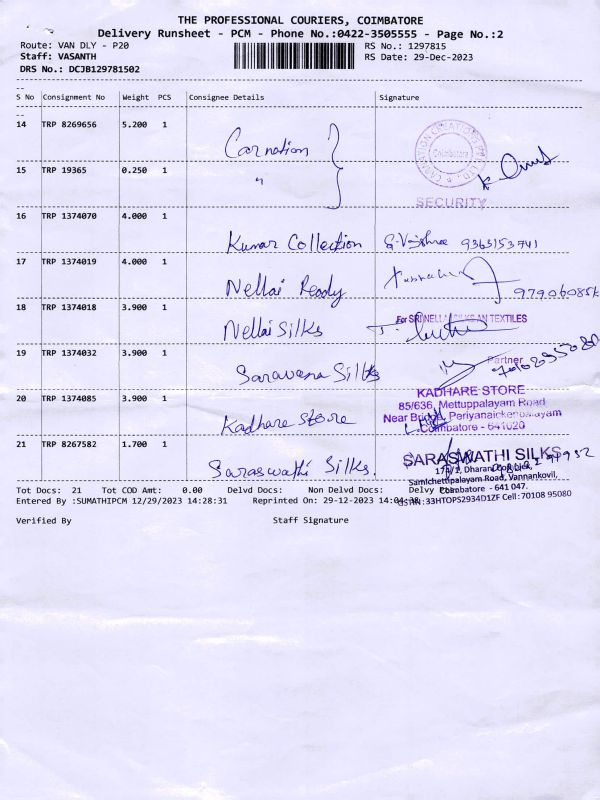 THE PROFESSIONAL COURIERS, COIMBATORE
Delivery Runsheet - PCM - Phone No.:0422-3505555 - Page No.:2
Route: VAN DLY - P20
RS No.: 1297815
Staff: VASANTH
RS Date: 29-Dec-2023
DRS No.: DCJB129781502
S No Consignment No Weight PCS Consignee Details Signature
14 TRP 8269656 5.200 1 Carnation
Coimbatore
15 TRP 19365 0.250 1 "
SECURITY
16 TRP 1374070 4.000 1 Kumar Collection 9363153741
17 TRP 1374019 4.000 1 Nellai Ready
18 TRP 1374018 3.900 1 Nellai Silks
For SRI NELLAI SILKS AN TEXTILES
19 TRP 1374032 3.900 1 Saravana Silks
Partner
20 TRP 1374085 3.900 1 Kadhare Store
KADHARE STORE
85/636, Mettuppalayam Road
Near Bridge, Periyanaickenpalayam
Coimbatore - 641020
21 TRP 8267582 1.700 1 Saraswathi Silks.
SARASWATHI SILKS
Samichettipalayam Road, Vannankovil,
Coimbatore - 641 047.
GSTIN:33HTOPS2934D1ZF Cell:70108 95080
Tot Docs: 21 Tot COD Amt: 0.00 Delvd Docs: Non Delvd Docs: Delvy
Entered By :SUMATHIPCM 12/29/2023 14:28:31 Reprinted On: 29-12-2023
Verified By Staff Signature